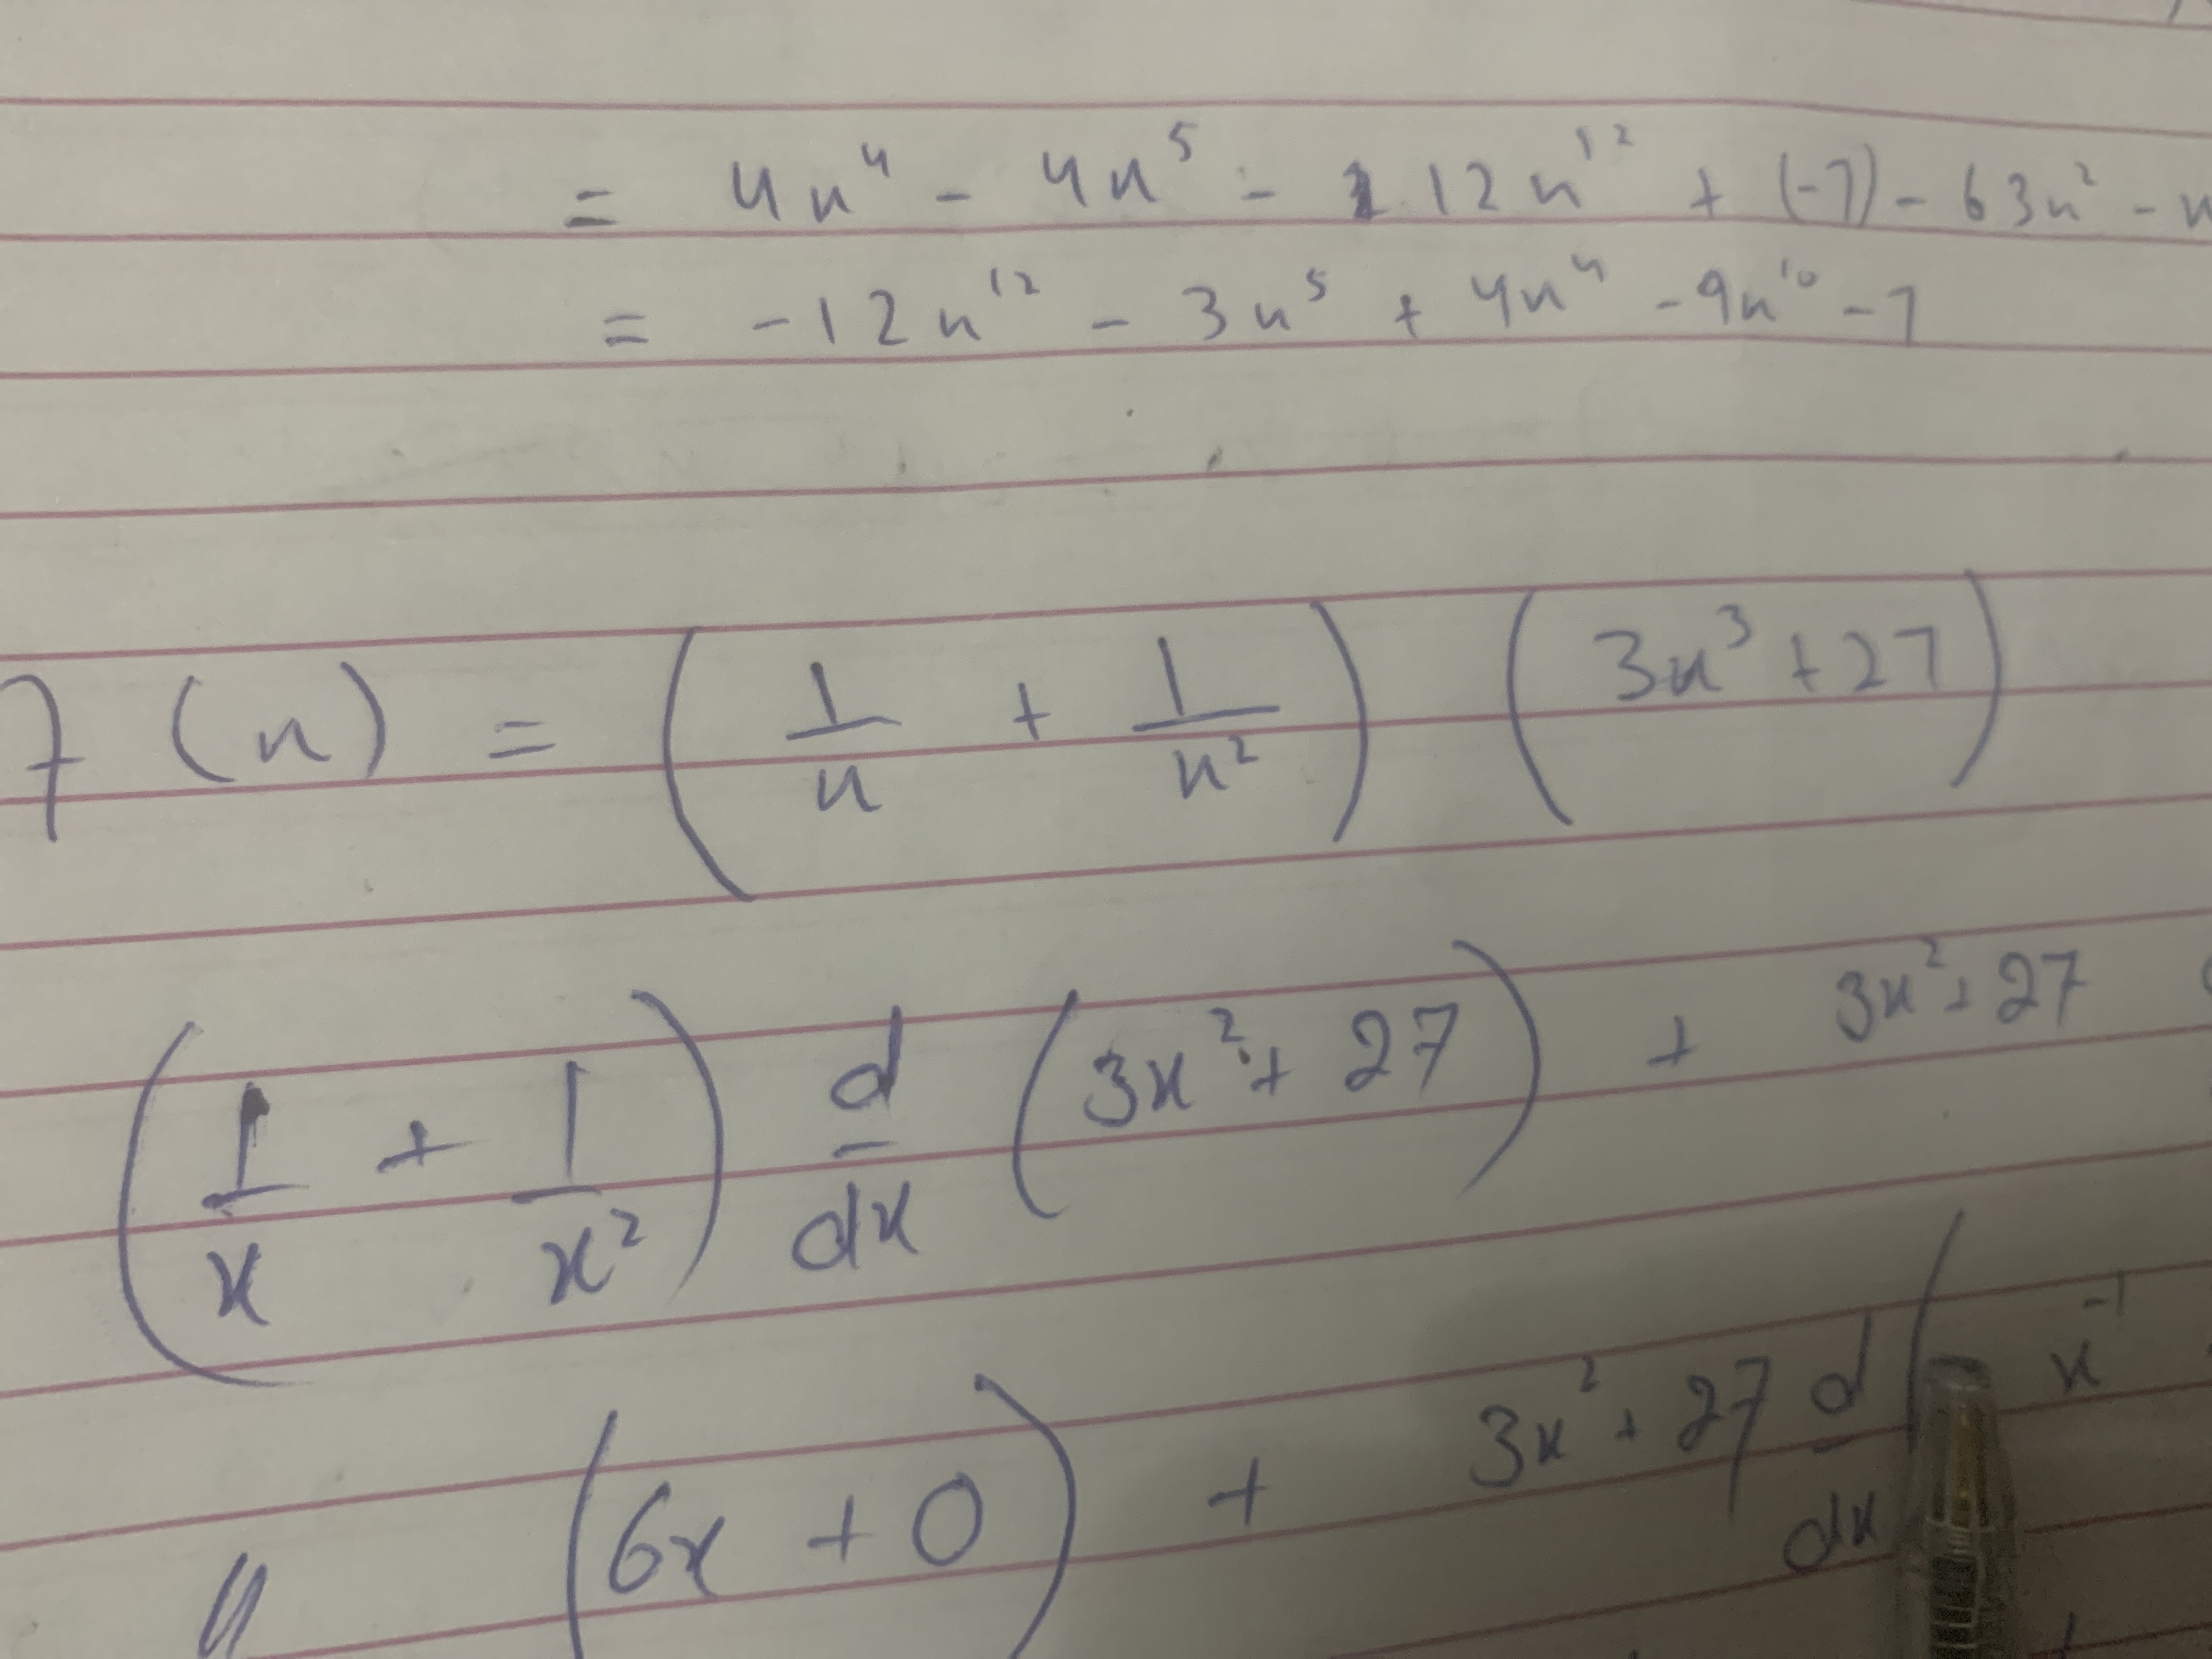 = x⁴ - 4x⁵ - 12x¹² + (-7) - 63x² - x
= -12x¹² - 3x⁵ + 4x⁴ - 9x¹⁰ - 7
f(x) = (1/x + 1/x²) (3x³ + 27)
(1/x + 1/x²) d/dx (3x² + 27) + 3x² + 27
" (6x + 0) + 3x² + 27 d/dx ( x⁻¹ +